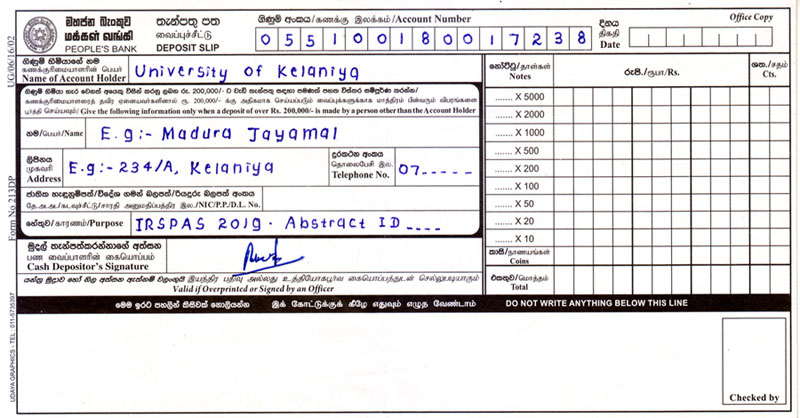 මහජන බැංකුව
மக்கள் வங்கி
PEOPLE'S BANK
තැන්පතු පත
வைப்புச்சீட்டு
DEPOSIT SLIP
ගිණුම් අංකය/கணக்கு இலக்கம்/Account Number
055100180017238
දිනය
திகதி
Date
Office Copy
UG/06/16/02
ගිණුම් හිමියාගේ නම
கணக்குரிமையாளரின் பெயர்
Name of Account Holder
University of Kelaniya
ගිණුම් හිමියා හැර වෙනත් අයෙකු විසින් කරනු ලබන රු. 200,000/- ට වැඩි තැන්පතු සඳහා පමණක් පහත විස්තර සම්පූර්ණ කරන්න/
கணக்குரிமையாளரைத் தவிர ஏனையவர்களினால் ரூ. 200,000/- க்கு அதிகமாக செய்யப்படும் வைப்புகளுக்கு மாத்திரம் பின்வரும் விபரங்களை
பூர்த்தி செய்யவும்/ Give the following information only when a deposit of over Rs. 200,000/- is made by a person other than the Account Holder
නම/பெயர்/Name
E.g:- Madura Jayamal
ලිපිනය
முகவரி
Address
E.g:- 234/A, Kelaniya
දුරකථන අංකය
தொலைபேசி இல.
Telephone No.
07-----
ජාතික හැඳුනුම්පත්/විදේශ ගමන් බලපත්‍ර/රියදුරු බලපත්‍ර අංකය
தே.அ.அ./கடவுச்சீட்டு/சாரதி அனுமதிப்பத்திர இல./NIC/P.P./D.L. No.
හේතුව/காரணம்/Purpose
IRSPAS 2019. Abstract ID____
මුදල් තැන්පත්කරන්නාගේ අත්සන
பண வைப்பாளரின் கையொப்பம்
Cash Depositor's Signature
யந்திர பதிவு அல்லது உத்தியோகத்தர் கையொப்பத்துடன் செல்லுபடியாகும்
Valid if Overprinted or Signed by an Officer
Form No 213DP
නෝට්ටු/தாள்கள்
Notes
රුපි./ரூபா/Rs.
ශත./சதம்
Cts.
........ X 5000
........ X 2000
........ X 1000
........ X 500
........ X 200
........ X 100
........ X 50
........ X 20
........ X 10
කාසි/நாணயங்கள்
Coins
එකතුව/மொத்தம்
Total
මෙම ඉරට පහළින් කිසිවක් නොලියන්න
இக் கோட்டுக்குக் கீழே எதுவும் எழுத வேண்டாம்
DO NOT WRITE ANYTHING BELOW THIS LINE
UDAYA GRAPHICS - TEL : 011-5735397
Checked by